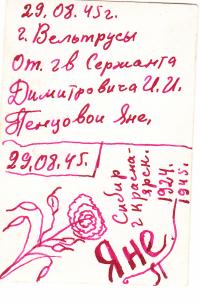 29.08.45г.
г. Вельтрусы
От. гв Сержанта
Димитровича И.И.
Пенцовой Яне,
29.08.45.
Сибир
г Красно-
ярск.
1924.
1945.
Яне